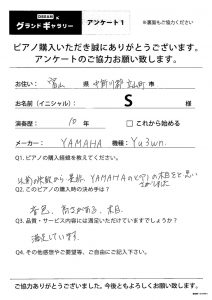 グランドギャラリー
アンケート1
※裏面もご協力ください
ピアノ購入いただき誠にありがとうございます。
アンケートのご協力お願い致します。
お住い： 富山 県 中新川郡立山町 市
お名前（イニシャル）： S 様
演奏歴： 10 年 □ これから始める
メーカー： YAMAHA 機種： Yu3wn.
Q1. ピアノの購入経緯を教えてください。
YAMAHAのピアノの木目をと思い
Q2. このピアノの購入時の決め手は？
音色、高さがある、木目
Q3. 品質・サービス内容には満足いただけていますでしょうか？
満足しています。
Q4. その他感想やご要望等、ご自由にご記入下さい。
ご協力ありがとうございました。今後ともよろしくお願い致します。